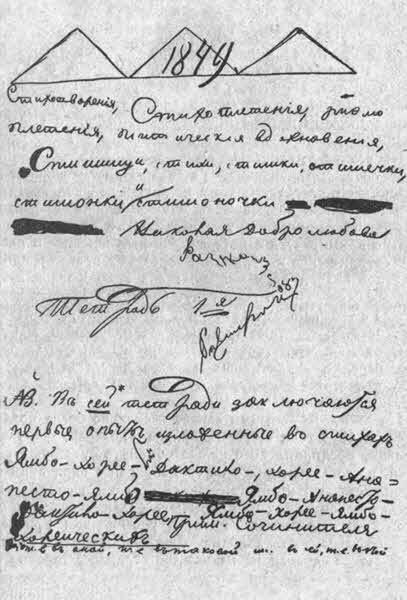 1849
Стихотворенія, Стихоплетенія, риѳмо
плетенія, піитическія вдохновенія,
Стишищи, стихи, стишки, стишечки,
стишонки и стишоночки
Николая Добролюбова
Тетрадь 1я
NB. Въ сей* тетради заключаются
первые опыты, изложенные въ стихахъ
Ямбо-хорее-Дактило-, хорее-Ана-
песто-Ямбо Ямбо-Анапесто-
Дактило-хорее-Ямбо-хорее-Ямбо-
Хореическихъ Прим. Сочинителя